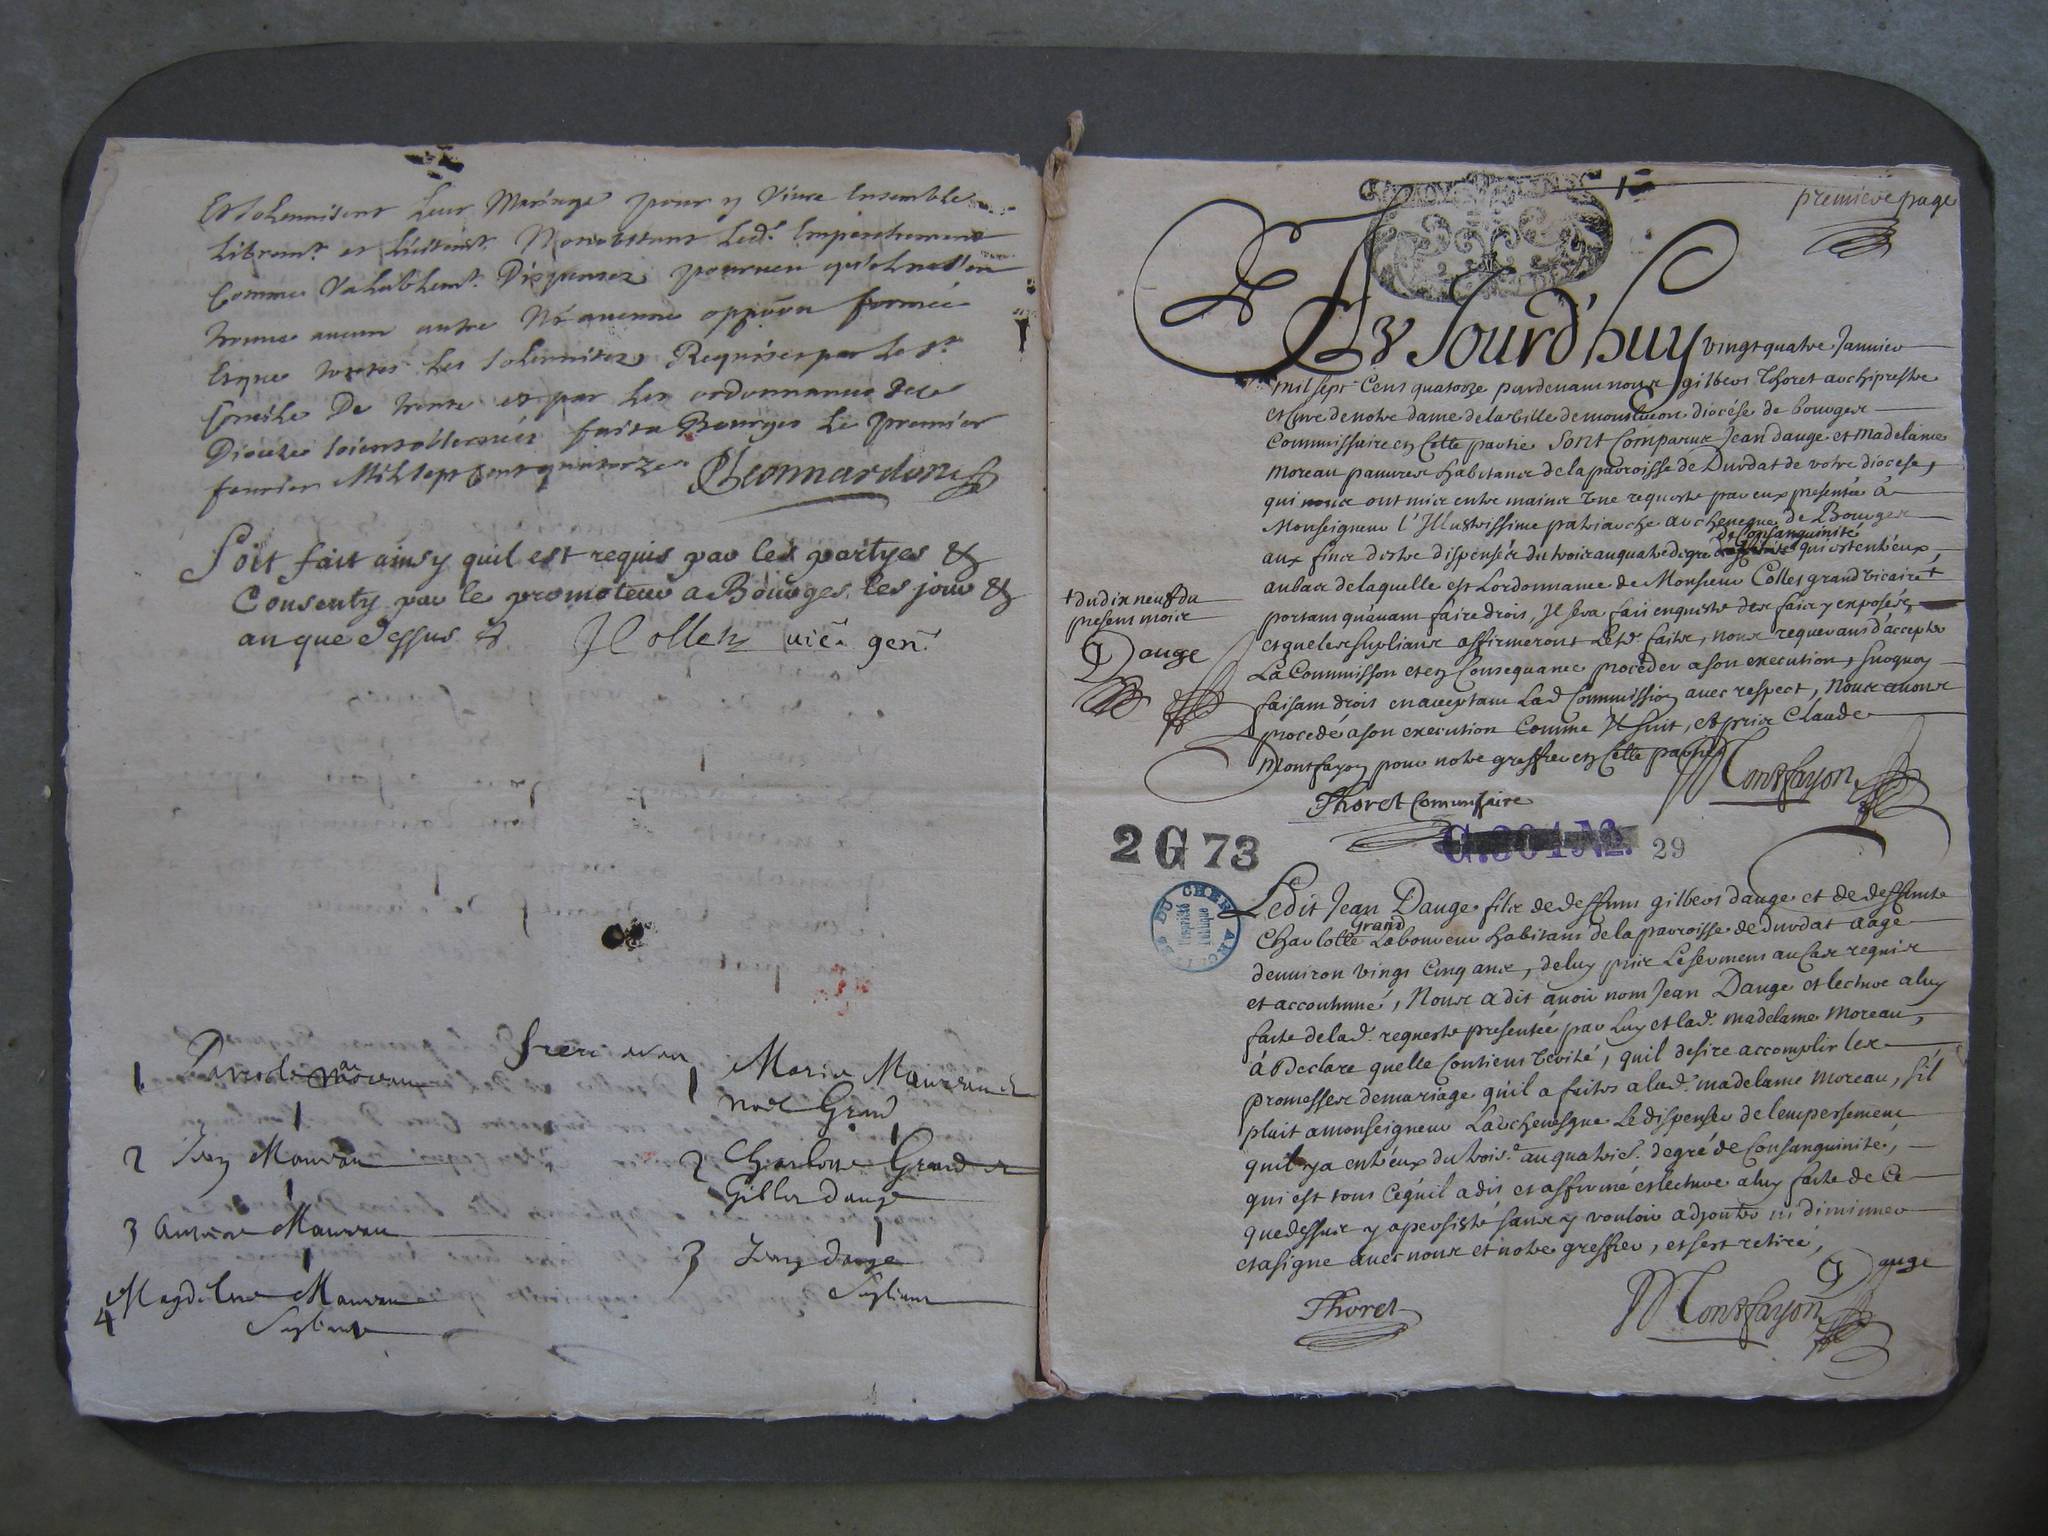 Et Solennisent leur Mariage pour y Vivre Ensemble
librem.t et licitem.t Nonobstant led.t Empeschement
Comme Valablem.t Dispensez pourveu qu'il ne s'en
trouve aucun autre Ny aucune oppōōn formée
Et que toutes les solennitez Requises par le St
Concile De trente et par les ordonnances de ce
Diocèse soient observées fait a Bourges le premier
fevrier Mil sept Cent quatorze Leonnardon
Soit fait ainsy quil est requis par les partyes &
Consenty par le promoteur a Bourges les jour &
an que dessus & J Collez vic. gen.
frere
1 moreau
1 Marie Maureau et
Noel Grand
2 Maureau
2 Charlotte Grand et
Gilbert dauge
3 Antoine Maureau
3 Jean dauge
Supliant
4 Magdelene Maureau
Supliante
premiere page
Au Jourd'huy vingt quatre Janvier
mil sept Cens quatorze pardevant nous gilbert Thoret archiprestre
et Cure de notre dame de la ville de montlucon diocése de bourges
Commissaire en Cette partie sont Comparus Jean dauge et Madelaine
Moreau pauvres habitans de la parroisse de Durdat de votre diocese,
qui nous ont mis entre mains une requeste par eux presentée à
Monseigneur l'Illustrissime patriarche archeveque de Bourges
de Consanguinité
aux fins destre dispensés du trois au quatre degre qui est entreux,
au bas de laquelle est Lordonnance de Monsieur Collet grand vicaire +
+ du dix neuf du
present mois
Dauge
portant quavant faire droit, Il sera fait enqueste des faits y exposés,
et que les suplians affirmeront lesd. faits, nous requerans d'accepter
La Commission et en Consequance proceder a son execution, Suquoy
faisant droit en acceptant Lad. Commission avec respect, Nous avons
procedé a son execution Comme Il suit, et pris Claude
Montfayon pour notre greffier en Cette partie Montfayon
Thoret Commissaire
2 G 73
G.304 No. 29
CHER ARCHIVES DU
Propriété
Publique
Ledit Jean Dauge fils de deffunt gilbert dauge et de deffunte
Grand
Charlotte Laboureur habitant de la parroisse de durdat aagé
denviron vingt Cinq ans, de luy pris Le serment au Cas requis
et accoutumé, Nous a dit avoir nom Jean Dauge et lecture a luy
faite de lad. requeste presentée par Luy et lad. madelaine Moreau,
à Declaré quelle Contient verité, quil desire accomplir les
promesses de mariage qu'il a faites a lad. madelaine Moreau, s'il
plait a monseigneur Larchevesque Le dispenser de lempeschement
quil y a entreux du trois.e au quatrie.e degré de Consanguinité,
qui est tout Ce quil a dit et affirmé et lecture a luy faite de Ce
que dessus y a persisté sans y vouloir adjouter ni diminuer
et a signe avec nous et notre greffier, et sest retiré,
Dauge
Thoret
Montfayon